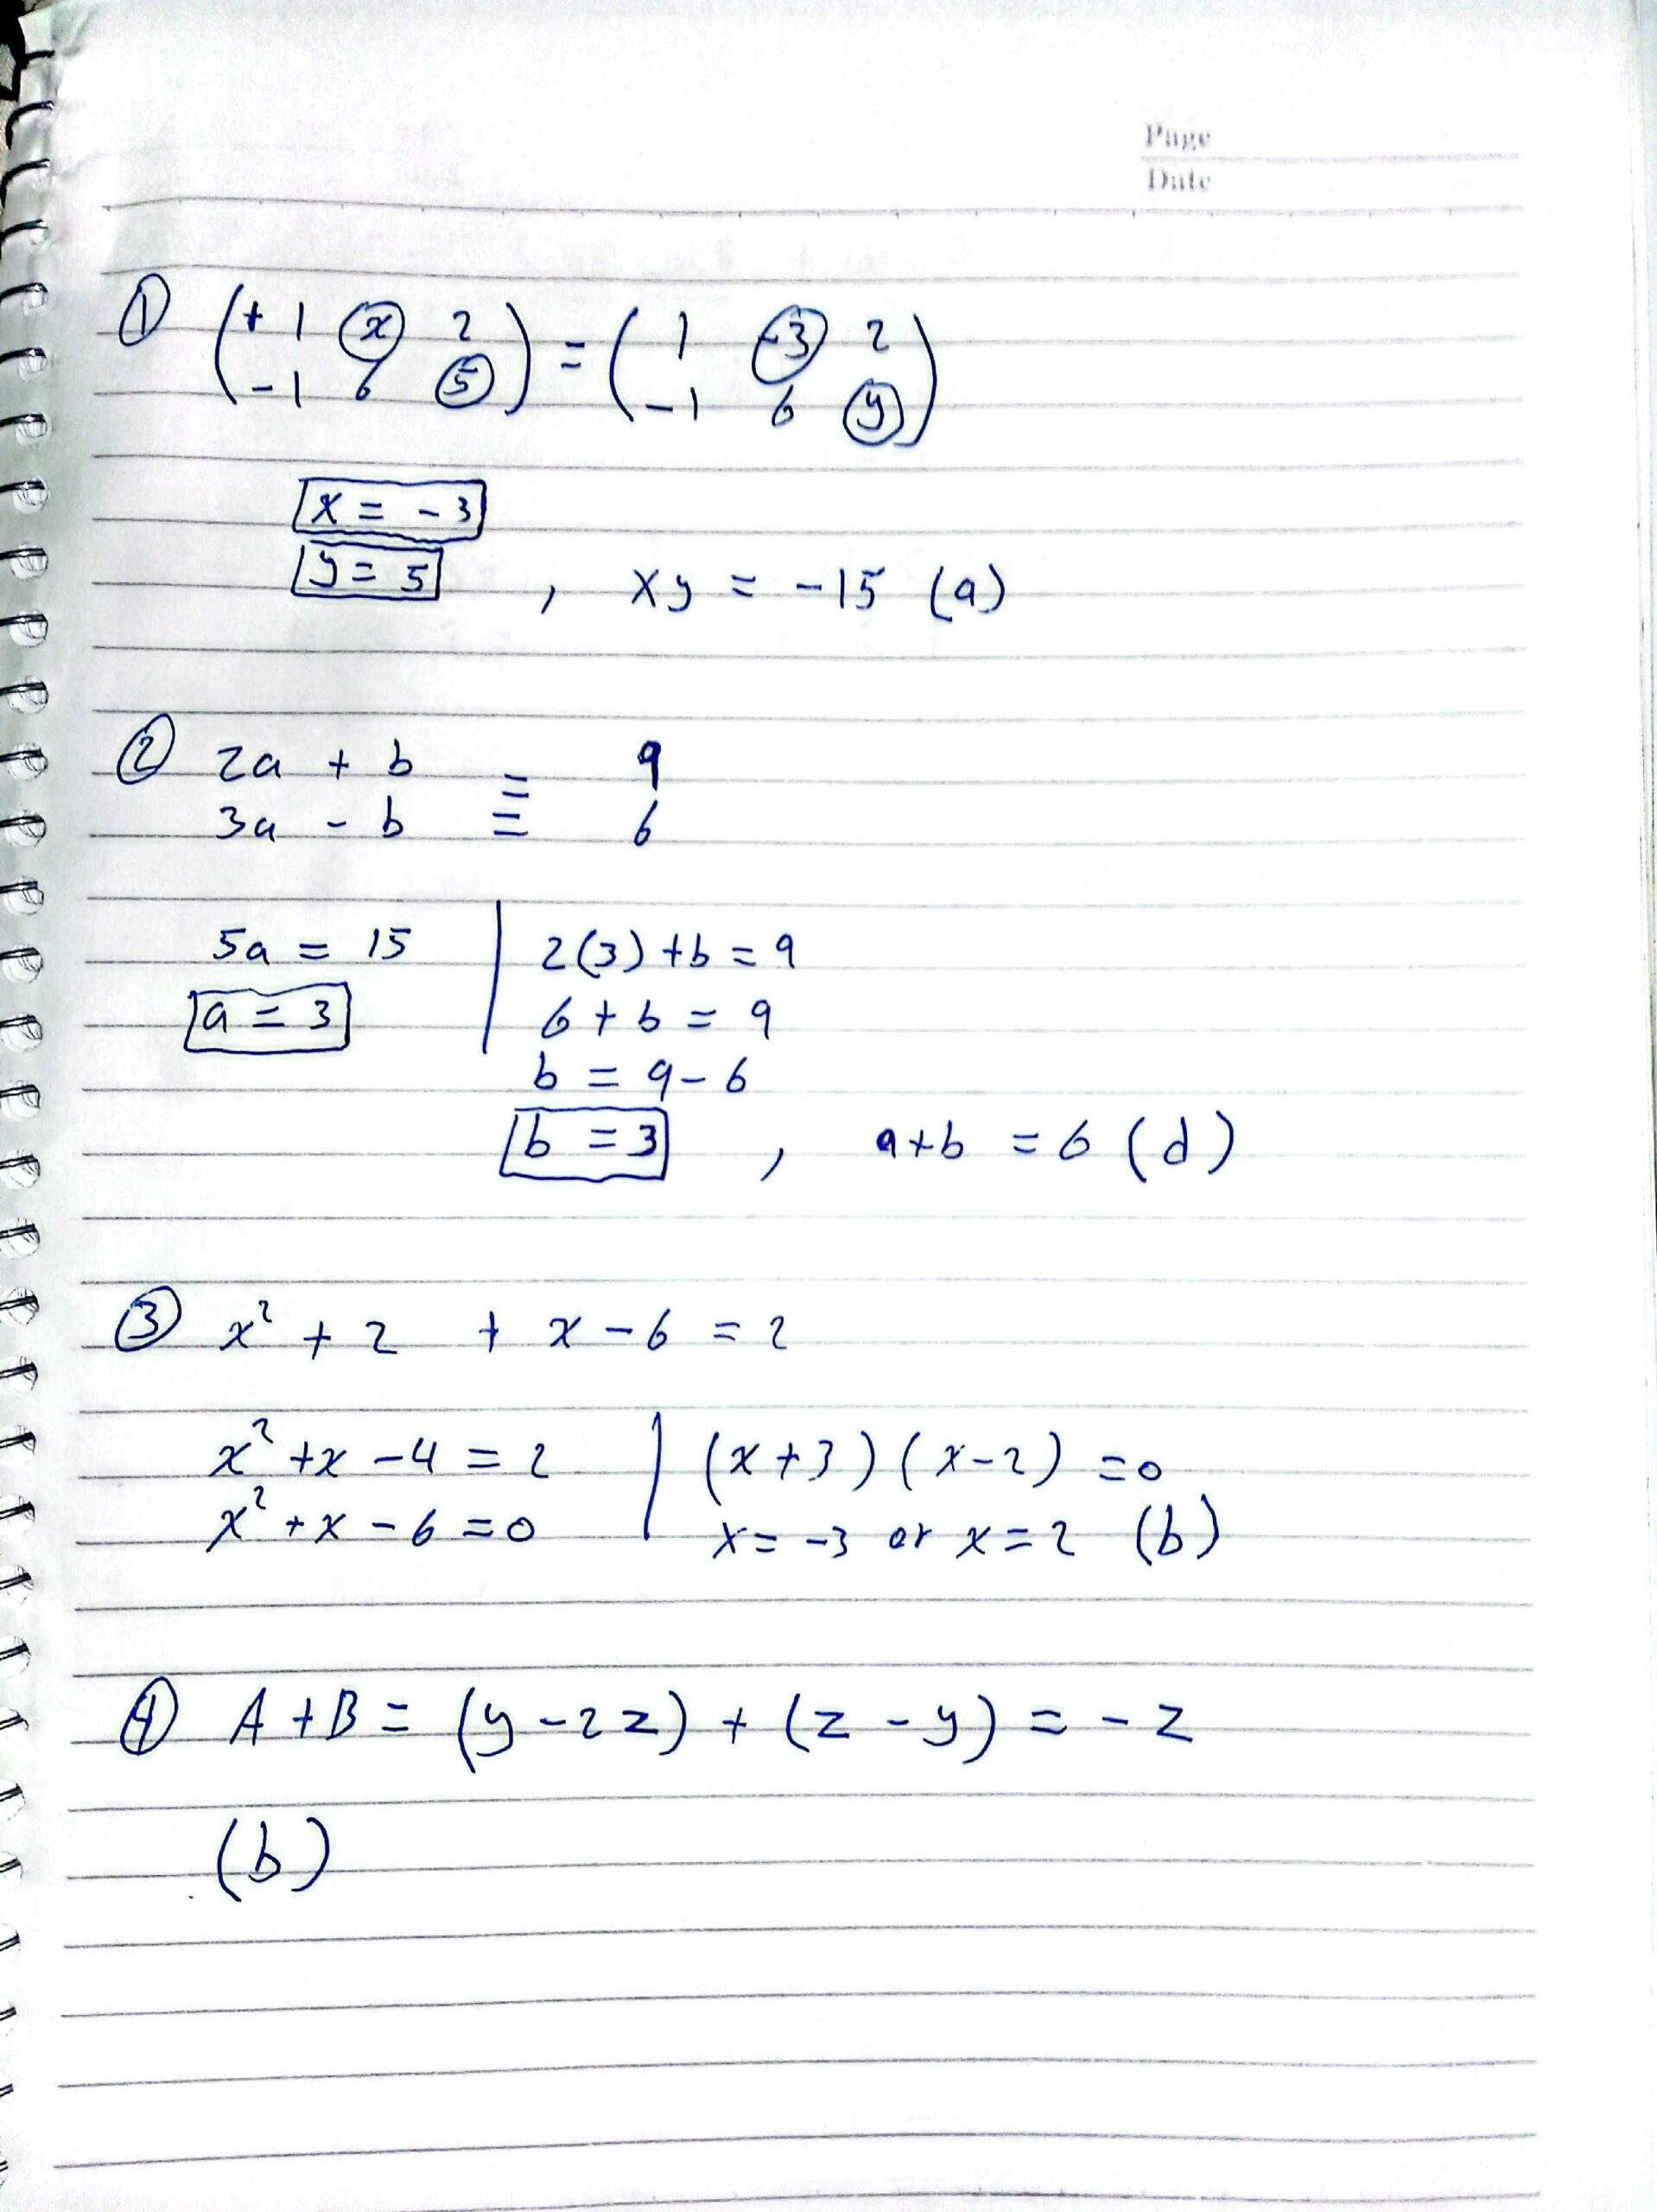 Page
Date
① ( + 1 x 2 ) = ( 1 -3 2 )
( -1 6 5 ) ( -1 6 y )
x = -3
y = 5 , xy = -15 (a)
② 2a + b = 9
3a - b = 6
5a = 15 | 2(3) + b = 9
a = 3 | 6 + b = 9
b = 9 - 6
b = 3 , a+b = 6 (d)
③ x² + 2 + x - 6 = 2
x² + x - 4 = 2 | (x+3) (x-2) = 0
x² + x - 6 = 0 | x = -3 or x = 2 (b)
④ A + B = (y - 2z) + (z - y) = - z
(b)